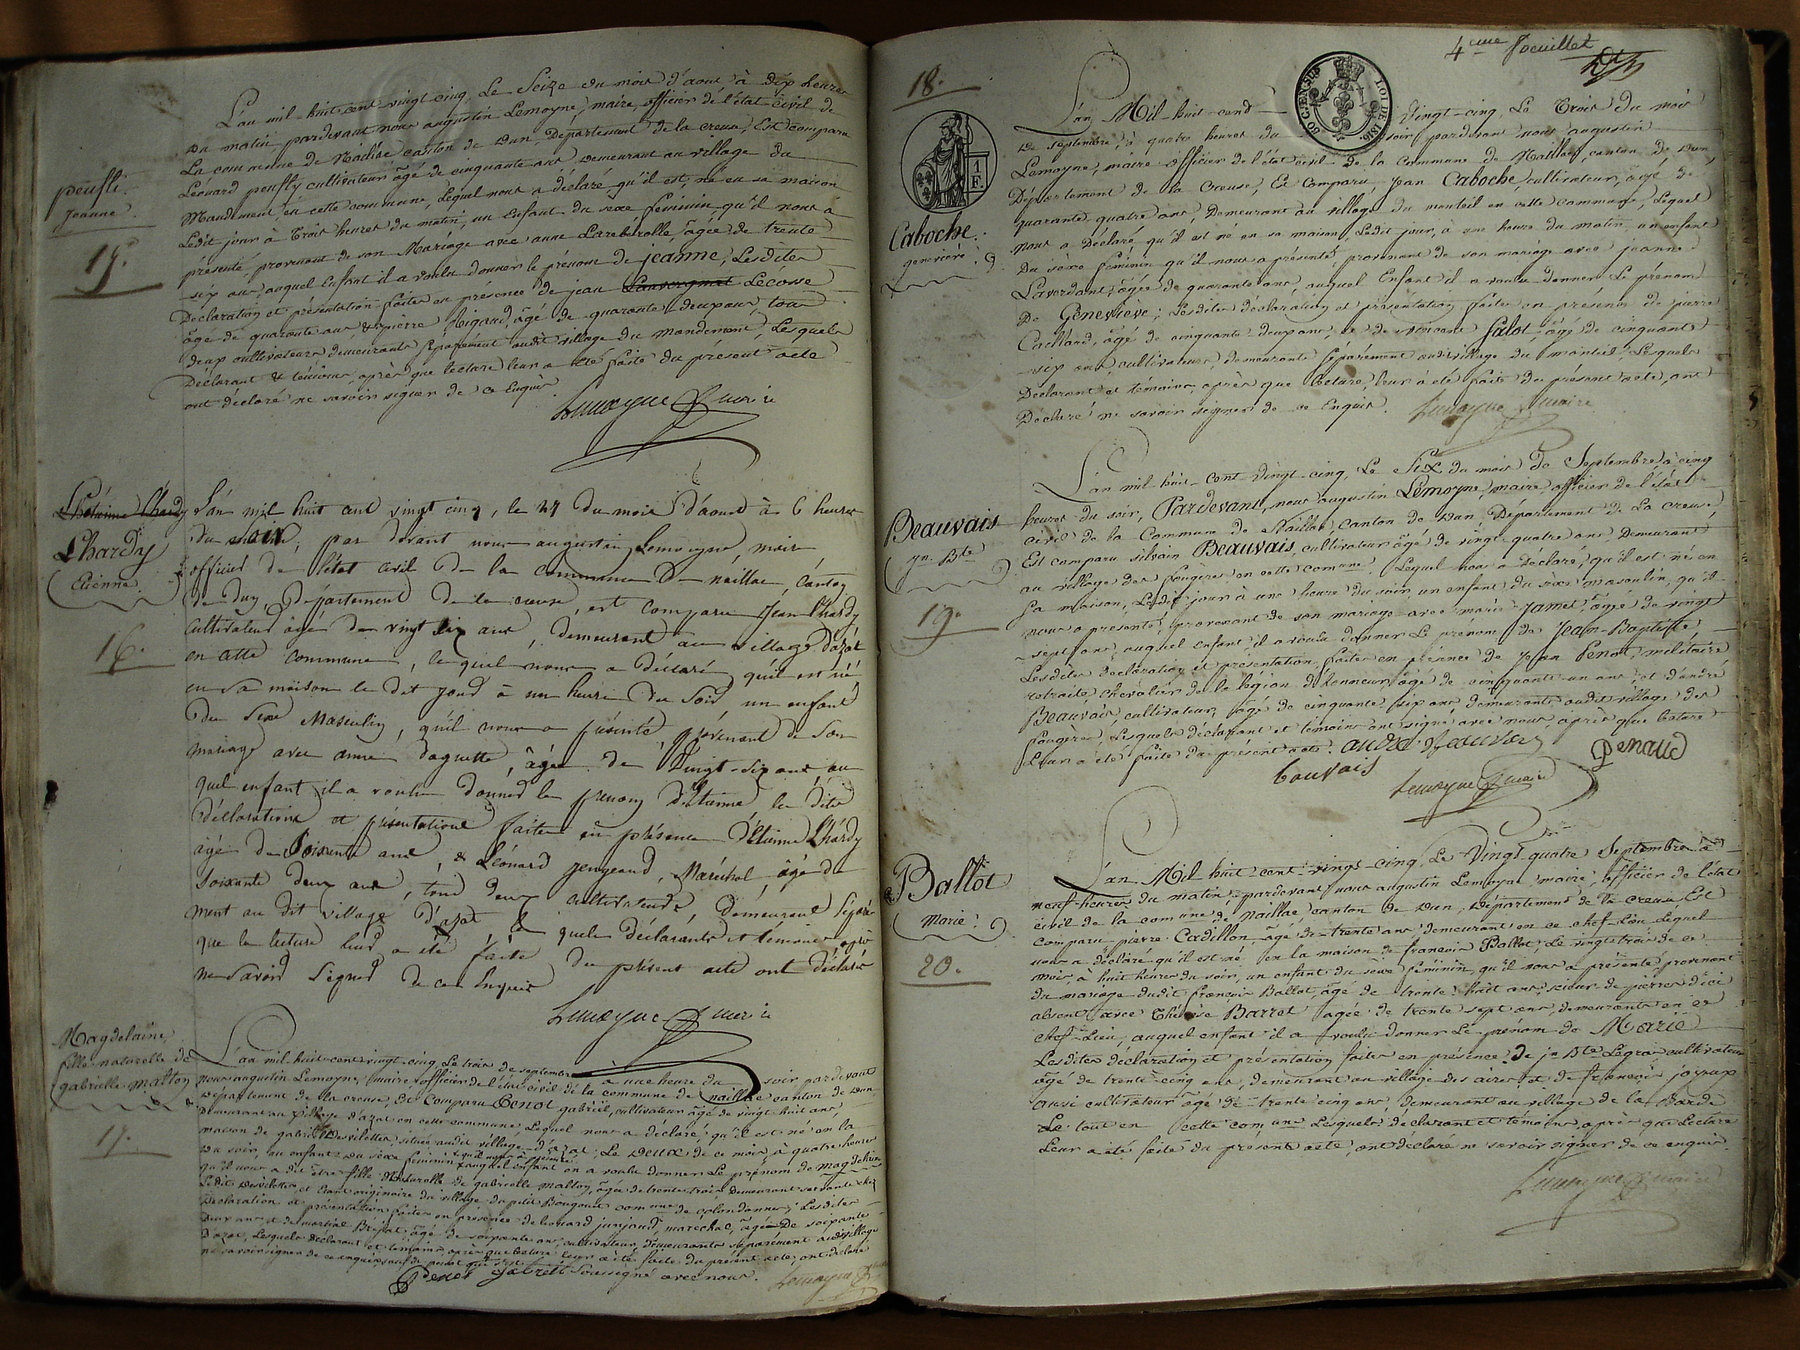 peufli.
jeanne.
15.
L'an mil huit cent vingt cinq, Le Seize du mois d'aout à dix heures
du matin pardevant nous augustin Lemoyne, maire, officier de l'état civil de
La commune de Naillac canton de Dun, Département de la creuse, Est comparu
Léonard peufly cultivateur âgé de cinquante ans Demeurant au village du
Mandement, en cette commune, Lequel nous a déclaré qu'il est né en sa maison
Ledit jour à trois heures du matin, un Enfant du sexe féminin qu'il nous a
présenté, provenant de son Mariage avec anne Lareberolle, âgée de trente
six ans, auquel Enfant il a voulu donner le prénom de jeanne, Lesdites
Déclaration et présentation faites en présence de jean Lécosse
âgé de quarante ans & pierre Rigaud, âgé de quarante deux ans, tous
deux cultivateurs demeurants séparément audit village du Mandement, Lesquels
Déclarant & témoins, après que lecture leur a été faite du présent acte
ont déclaré ne savoir signer de ce Enquis.
Lemoyne maire
Lhardy
Etienne.
16.
L'an mil huit cent vingt cinq, le 27 du mois d'aoust à 6 heures
du soir, par devant nous augustin Lemoyne, maire
officier de l'état civil de la commune de naillac, canton
de Dun, Département de la creuse, est comparu Jean Lhardy
cultivateur âgé de vingt six ans, demeurant au village d'azat
en cette commune, le quel nous a déclaré qu'il est né
en sa maison le dit jour à une heure du soir un enfant
du sexe Masculin, qu'il nous a présenté, provenant de son
mariage avec anne daguette, âgée de Vingt-six ans, au
quel enfant il a voulu donner le prenom d'Etienne les dites
déclarations et présentations faites en présence d'Etienne Lhardy
âgé de Soixante ans, & Léonard jeugeand, Maréchal, âgé de
soixante deux ans, tous deux cultivateurs, demeurant séparé
ment au dit village d'azat, les quels déclarants et témoins, après
que la lecture leur a été faite du présent acte ont déclaré
ne savoir signer de ce Enquis
Lemoyne maire
Magdelaine,
fille naturelle de
gabrielle malton
17.
L'an mil huit cent vingt cinq Le trois de septembre à une heure du soir par devant
nous augustin Lemoyne, maire, officier de l'état civil de la commune de naillac canton de Dun
Département de la creuse, Est Comparu Penot gabriel, cultivateur âgé de vingt huit ans,
demeurant au village d'azat en cette commune, Lequel nous a déclaré, qu'il est né en la
maison de gabriel Desvilettes située audit village d'azat, Le Deux de ce mois, à quatre heures
du soir, un enfant du sexe féminin & auquel enfant on a voulu donner Le prénom de magdelaine
qu'il nous a dit être fille Naturelle de gabrielle malton, âgée de trente trois Demeurant servante chez
Ledit Desvilettes, et Etant originaire du village du petit Bougoueix commune de colondannes, Lesdites
Déclaration et présentation faites en présence de leonard junjaud, marechal, âgé de soixante
deux ans et de martial Brejat, âgé de soixante ans, cultivateur, Demeurants séparément audit village
D'azat, Lesquels déclarant et témoins après que lecture leur a été faite du présent acte, ont déclaré
ne savoir signer de ce enquis, sauf ledit penot qui s'est soussigné avec nous.
Penot Gabriel
Lemoyne
4eme feuillet
18.
Caboche.
genevieve.
L'an Mil huit cent vingt-cinq, Le Trois du mois
de septembre, à quatre heures du soir, pardevant nous augustin
Lemoyne, maire officier de l'état civil de la Commune de Naillac, canton de Dun,
Département de la Creuse, Est Comparu, jean Caboche, cultivateur, âgé de
quarante quatre ans, Demeurant au village du monteil en cette commune, Lequel
nous a Déclaré qu'il est né en sa maison, Ledit jour, à une heure du matin, un enfant
Du sèxe féminin qu'il nous a présenté provenant de son mariage avec jeanne
Laverdant, âgée de quarante ans, auquel Enfant il a voulu donner Le prénom
De Geneviève; Lesdites déclaration et présentation faites en présence de pierre
Caillard, âgé de cinquante deux ans, et de Salot, âgé de cinquant
six ans cultivateurs, demeurants séparément audit village du monteil, Lesquels
Déclarant et témoins après que lecture leur a été fait du présent acte, ont
Déclaré ne savoir signer de ce Enquis.
Lemoyne maire
Beauvais
jn. Bte
19.
L'an mil huit cent vingt-cinq, Le Six du mois de Septembre, à cinq
heures du soir, Pardevant nous augustin Lemoyne, maire, officier de l'état
civil de la Commune de Naillac, Canton de Dun, Département de la Creuse,
Est comparu silvain Beauvais, cultivateur âgé de vingt-quatre ans Demeurant
au village des fougères en cette commune, Lequel nous a déclaré, qu'il est né en
sa maison, Ledit jour à une heure du soir, un enfant du sèxe masculin, qu'il
nous a présenté, provenant de son mariage avec marie Jamet, âgée de vingt
sept ans, auquel enfant, il a voulu donner Le prénom de Jean-Baptiste
Lesdites déclaration et présentation faites en présence de jean Penot, militaire
retraité, chevalier de la légion d'honneur, âgé de cinquante un ans et d'andré
Beauvais, cultivateur, âgé de cinquante six ans, demeurants audit village des
fougères, Lesquels déclarant et témoins ont signé avec nous, après que lecture
leur a été faite du present acte.
andre Beauvais
Penaud
bauvais
Lemoyne maire
Ballot
Marie.
20.
L'an Mil huit cent vingt-cinq, Le Vingt-quatre Septembre à
neuf heures du matin, pardevant nous augustin Lemoyne, maire, officier de l'état
civil de la commune de Naillac canton de Dun, Département de la creuse, Est
comparu pierre Cadillon, âgé de trente ans demeurant en ce chef-lieu, Lequel
nous a déclaré qu'il est né en la maison de francois Ballot, Le vingt trois de ce
mois, à huit heures du soir, un enfant du sexe féminin, qu'il nous a présenté provenant
du mariage dudit françois Ballot, âgé de trente huit ans, scieur de pierres d'ici
absent, avec Thérèse Barret âgée de trente sept ans, demeurants en ce
chef-Lieu, auquel enfant il a voulu donner Le prénom de Marie
Lesdites déclaration et présentation faites en présence de jn Bte Légros, cultivateur
âgé de trente-cinq ans, demeurant au village des aires, et de françois joyeux
aussi cultivateur âgé de trente cinq ans demeurant au village de la Barde
Le tout en cette commune Lesquels déclarant et témoins, après que Lecture
Leur a été faite du présent acte, ont déclaré ne savoir signer de ce enquis.
Lemoyne maire